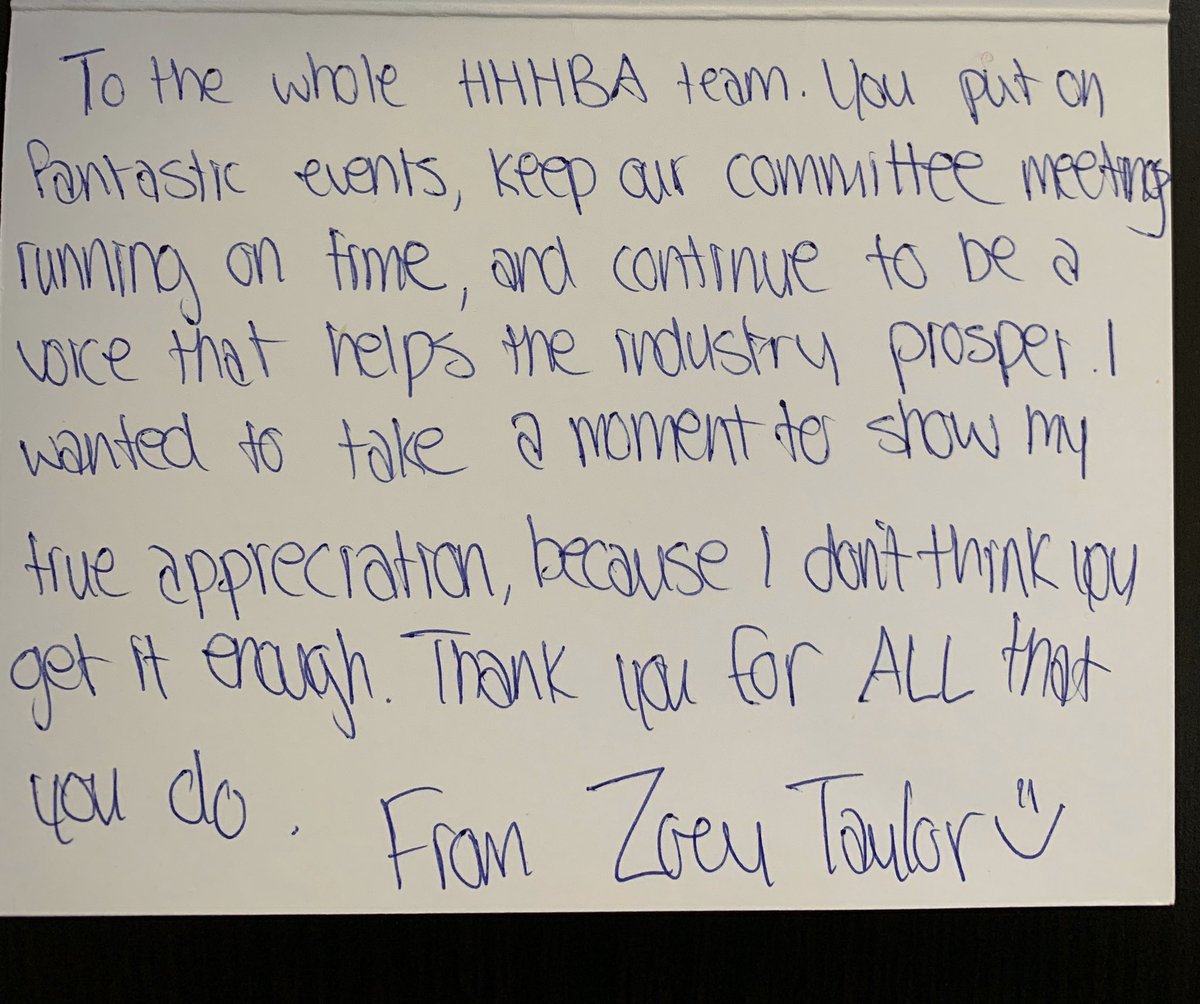 To the whole HHHBA team. You put on
fantastic events, keep our committee meetings
running on time, and continue to be a
voice that helps the industry prosper. I
wanted to take a moment to show my
true appreciation, because I don't think you
get it enough. Thank you for ALL that
you do.
From Zoey Taylor